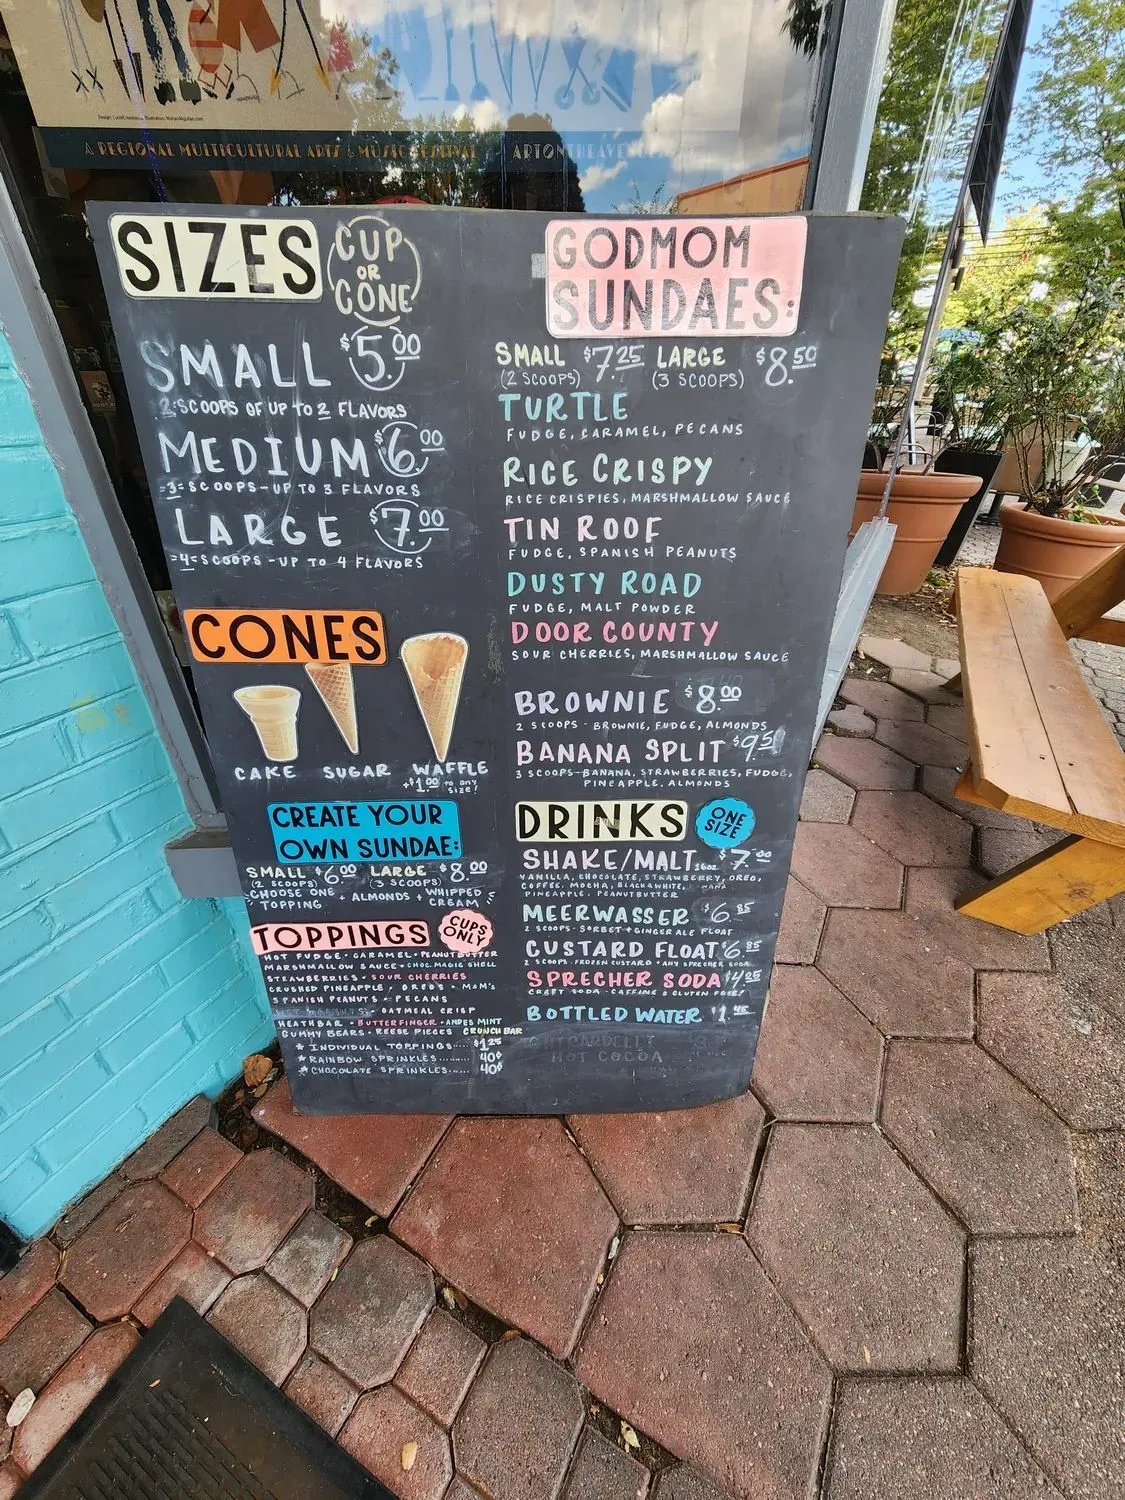 A REGIONAL MULTICULTURAL ARTS & MUSIC FESTIVAL
SIZES
CUP
OR
CONE
SMALL $5.00
2 SCOOPS OF UP TO 2 FLAVORS
MEDIUM $6.00
=3= SCOOPS - UP TO 3 FLAVORS
LARGE $7.00
=4= SCOOPS - UP TO 4 FLAVORS
CONES
CAKE SUGAR WAFFLE
+$1.00 to any
size!
CREATE YOUR
OWN SUNDAE:
SMALL $6.00 LARGE $8.00
(2 SCOOPS) (3 SCOOPS)
CHOOSE ONE
TOPPING + ALMONDS + WHIPPED
CREAM
TOPPINGS
CUPS
ONLY
HOT FUDGE · CARAMEL · PEANUT BUTTER
MARSHMALLOW SAUCE · CHOC. MAGIC SHELL
STRAWBERRIES · SOUR CHERRIES
CRUSHED PINEAPPLE · OREOS · M&M's
SPANISH PEANUTS · PECANS
OATMEAL CRISP
HEATHBAR · BUTTERFINGER · ANDES MINT
GUMMY BEARS · REESE PIECES CRUNCH BAR
* INDIVIDUAL TOPPINGS.... $1.25
* RAINBOW SPRINKLES....... 40¢
* CHOCOLATE SPRINKLES..... 40¢
GODMOM
SUNDAES:
SMALL $7.25 LARGE $8.50
(2 SCOOPS) (3 SCOOPS)
TURTLE
FUDGE, CARAMEL, PECANS
RICE CRISPY
RICE CRISPIES, MARSHMALLOW SAUCE
TIN ROOF
FUDGE, SPANISH PEANUTS
DUSTY ROAD
FUDGE, MALT POWDER
DOOR COUNTY
SOUR CHERRIES, MARSHMALLOW SAUCE
BROWNIE $8.00
2 SCOOPS - BROWNIE, FUDGE, ALMONDS
BANANA SPLIT $9.50
3 SCOOPS - BANANA, STRAWBERRIES, FUDGE,
PINEAPPLE, ALMONDS
DRINKS
ONE
SIZE
SHAKE/MALT 16oz $7.00
VANILLA, CHOCOLATE, STRAWBERRY, OREO,
COFFEE, MOCHA, BLACK & WHITE,
PINEAPPLE, PEANUTBUTTER
MEERWASSER $6.85
2 SCOOPS - SORBET + GINGER ALE FLOAT
CUSTARD FLOAT $6.85
2 SCOOPS - FROZEN CUSTARD + ANY SPRECHER SODA
SPRECHER SODA $4.25
CRAFT SODA - CAFFINE & GLUTEN FREE!
BOTTLED WATER
HOT COCOA